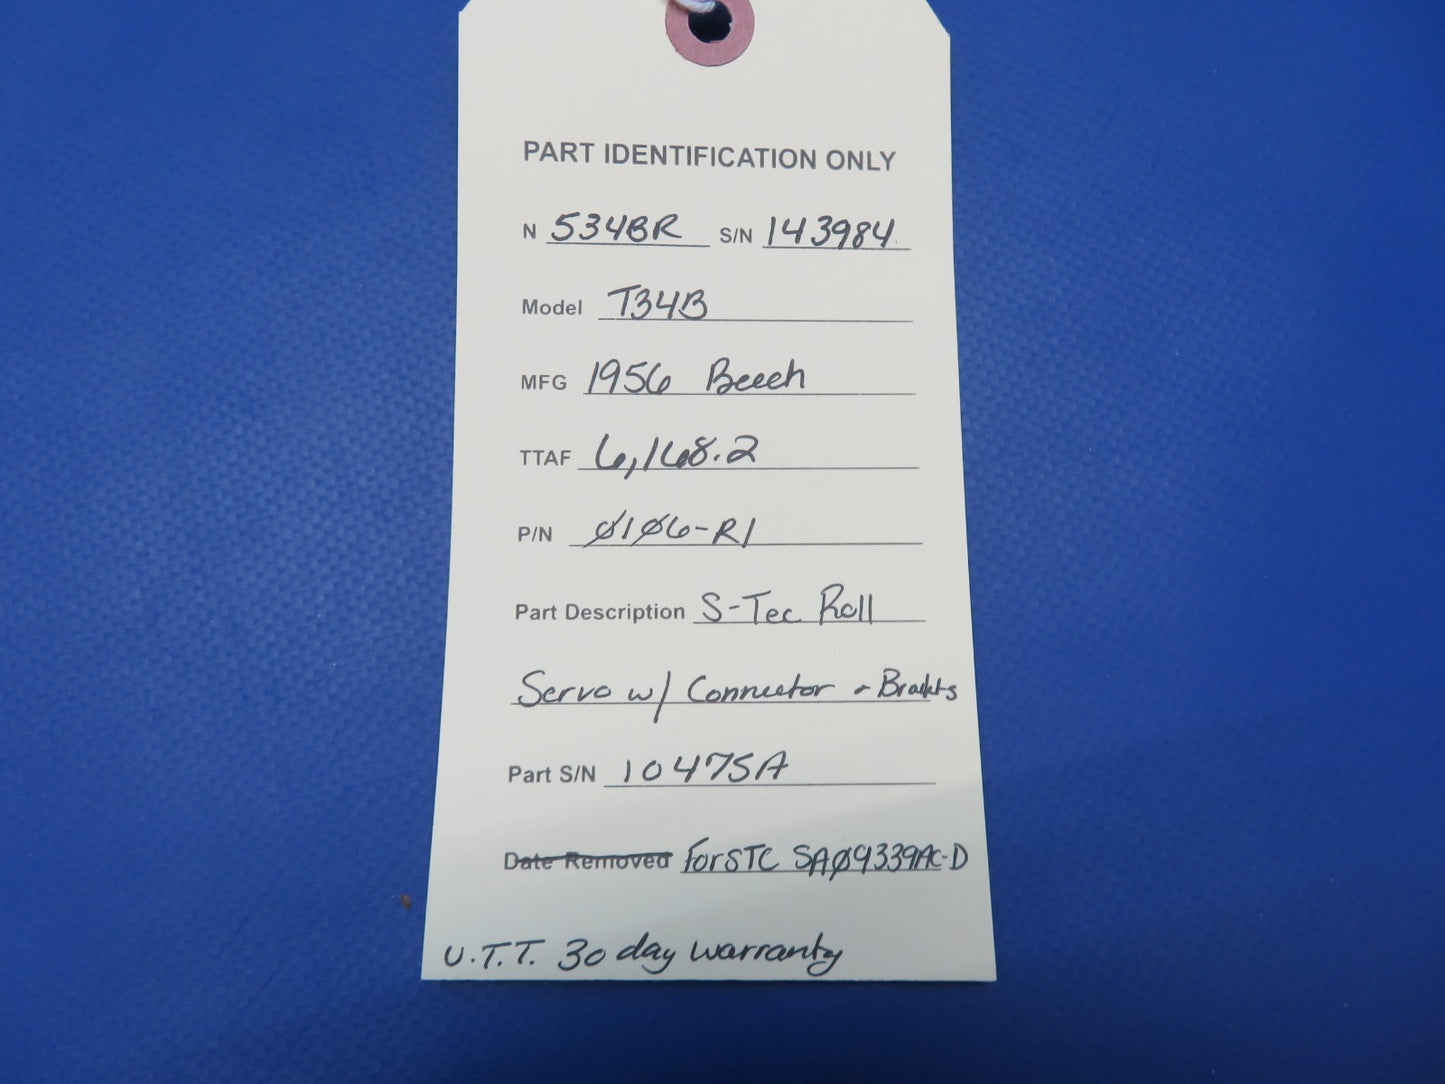 PART IDENTIFICATION ONLY
N 534BR S/N 143984
Model T34B
MFG 1956 Beech
TTAF 6,168.2
P/N Ø1Ø6-R1
Part Description S-Tec Roll
Servo w/ Connector & Brackets
Part S/N 10475A
Date Removed For STC SAØ9339AC-D
U.T.T. 30 day warranty